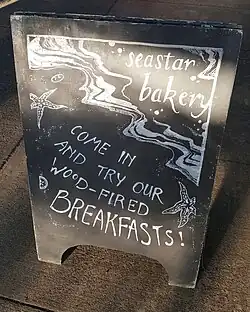 seastar
bakery
COME IN
AND TRY OUR
WOOD-FIRED
BREAKFASTS!